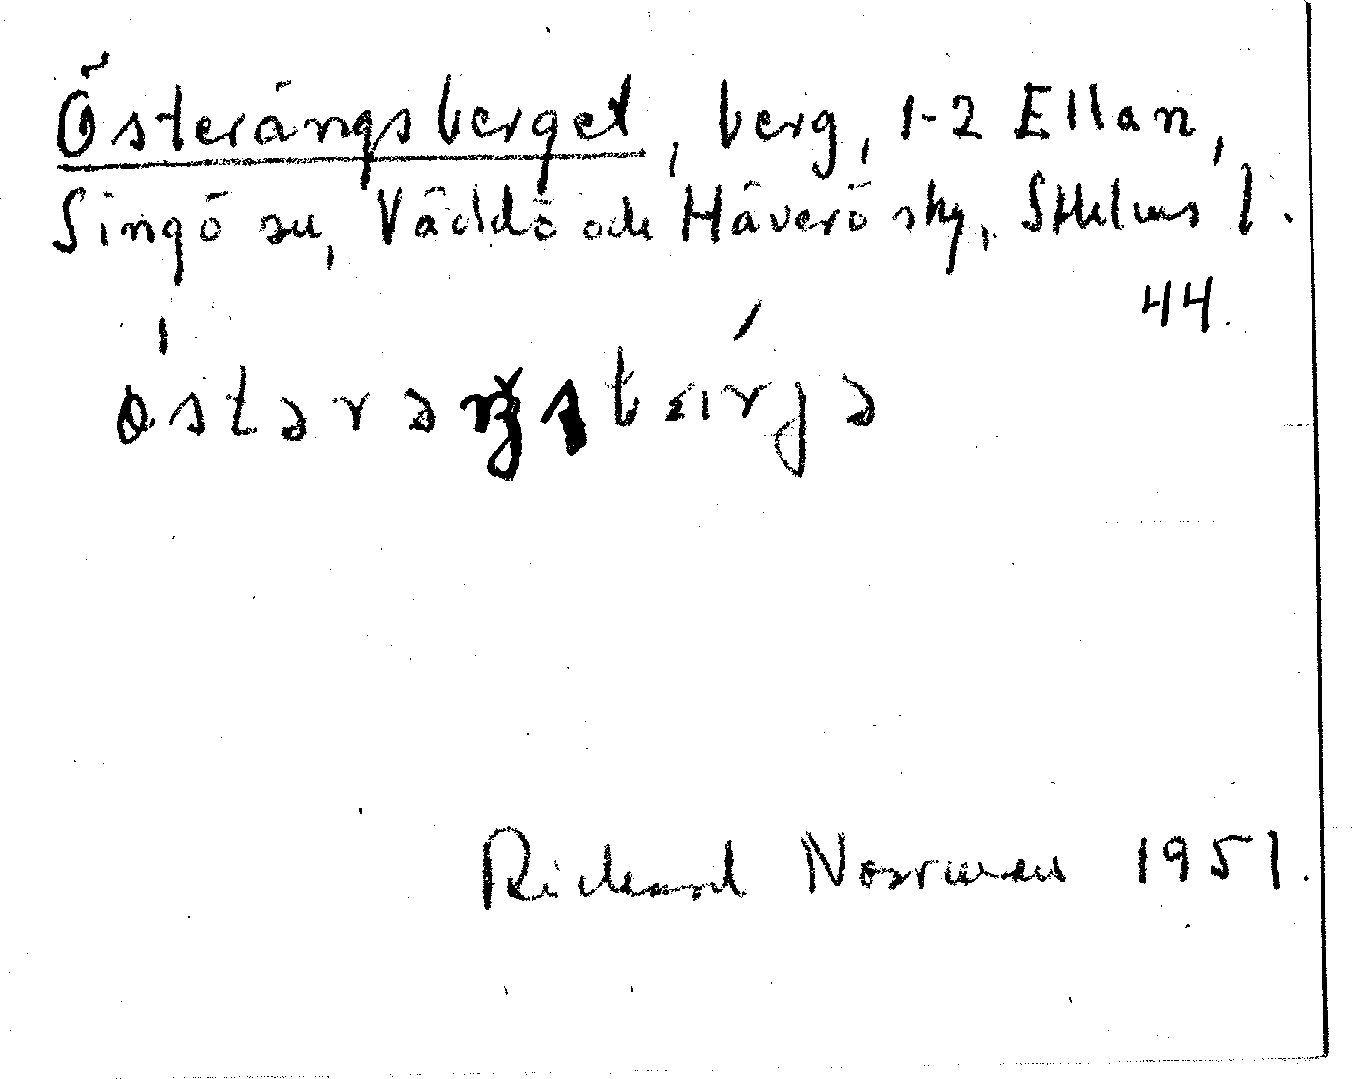 Österängsberget, berg, 1-2 Ellan,
Singö sn, Väddö och Häverö skg, Sthlms l.
44.
Rickard Norrman 1951.